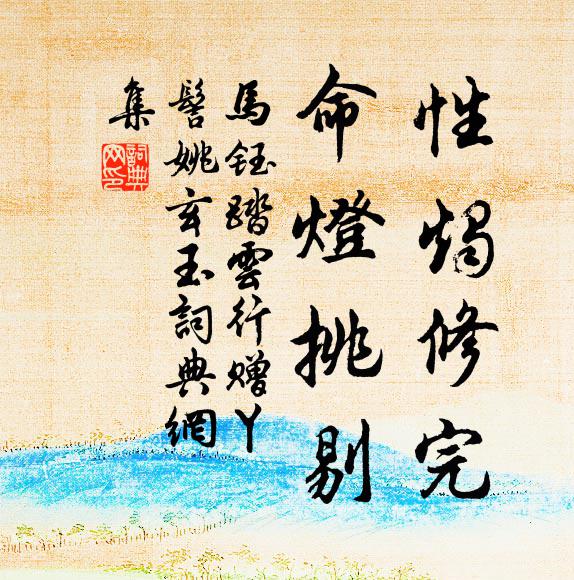 性燭修完
命燈挑剔
馬鈺踏雲行贈丫
髻姚玄玉詞典網
集
詞典網印